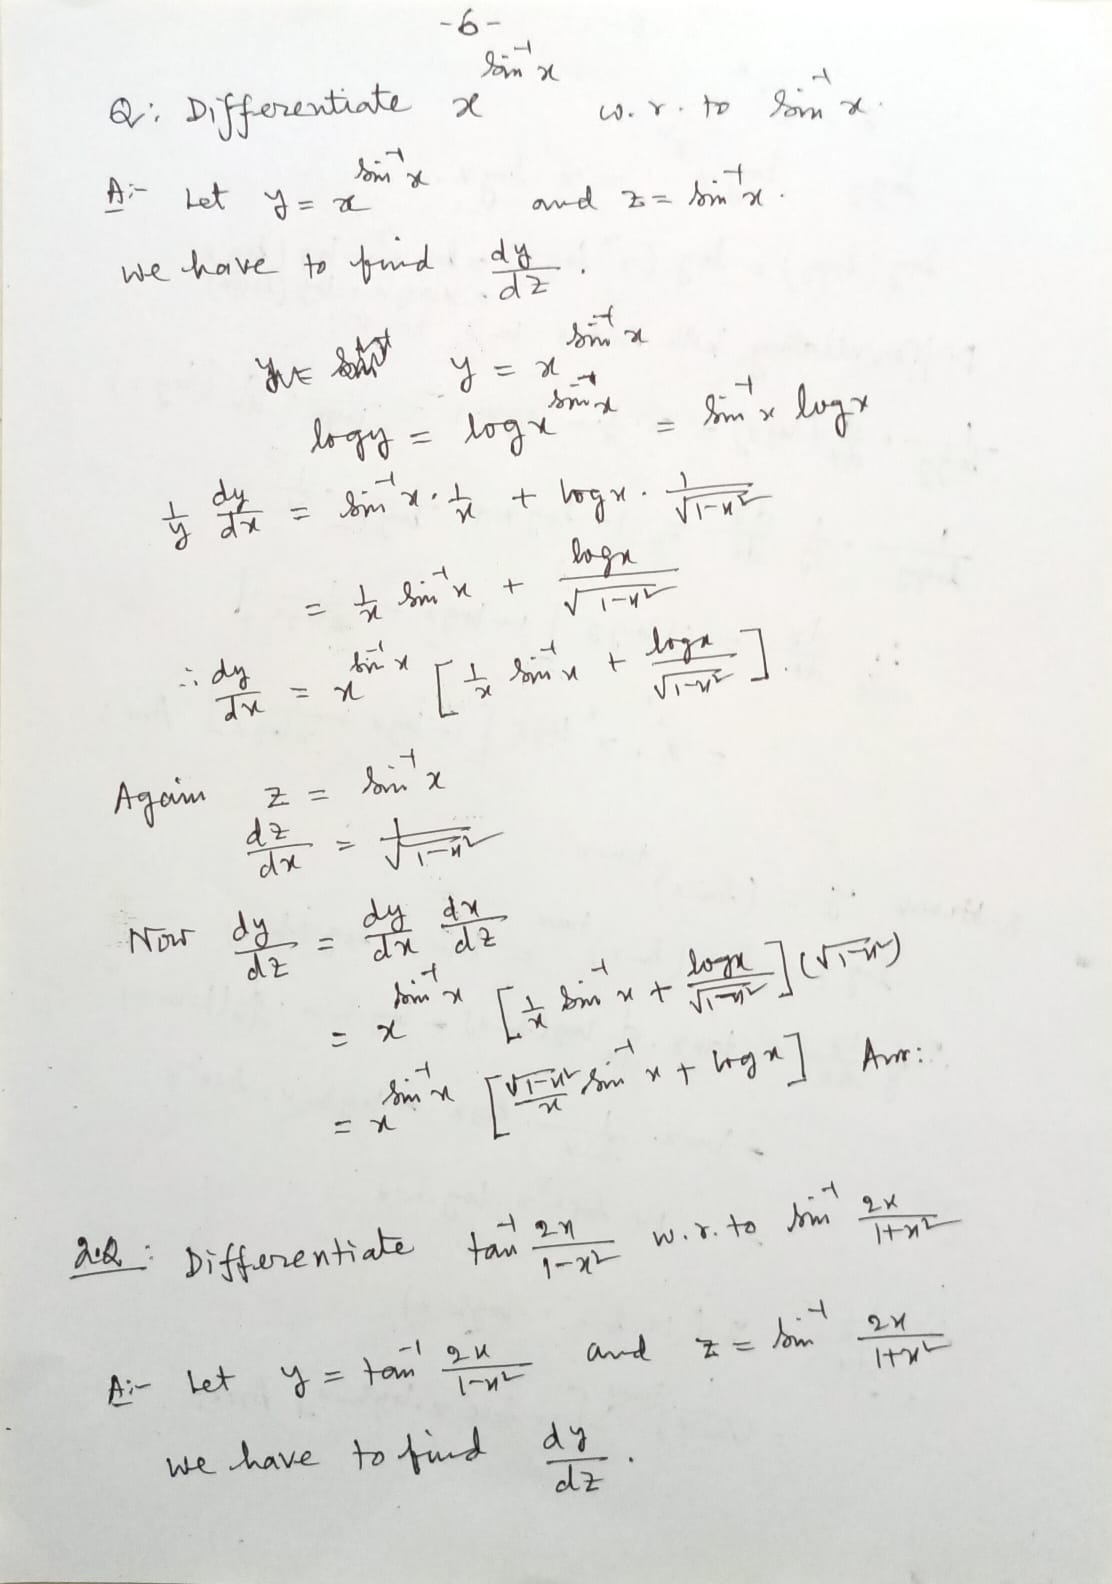 -6-
Q: Differentiate x^{sin^{-1} x} w.r. to sin^{-1} x.
A:- Let y = x^{sin^{-1} x} and z = sin^{-1} x.
we have to find dy/dz.
y = x^{sin^{-1} x}
log y = log x^{sin^{-1} x} = sin^{-1} x log x
1/y dy/dx = sin^{-1} x . 1/x + log x . 1/√(1-x²)
= 1/x sin^{-1} x + log x/√(1-x²)
∴ dy/dx = x^{sin^{-1} x} [1/x sin^{-1} x + log x/√(1-x²)].
Again z = sin^{-1} x
dz/dx = 1/√(1-x²)
Now dy/dz = dy/dx dx/dz
= x^{sin^{-1} x} [1/x sin^{-1} x + log x/√(1-x²)] (√(1-x²))
= x^{sin^{-1} x} [√(1-x²)/x sin^{-1} x + log x] Ans:
2.Q: Differentiate tan^{-1} 2x/(1-x²) w.r. to sin^{-1} 2x/(1+x²)
A:- Let y = tan^{-1} 2x/(1-x²) and z = sin^{-1} 2x/(1+x²)
we have to find dy/dz.